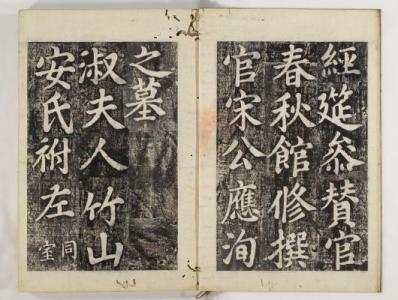 經筵參贊官
春秋館修撰
官宋公應洵
之墓
淑夫人竹山
安氏祔左
同室